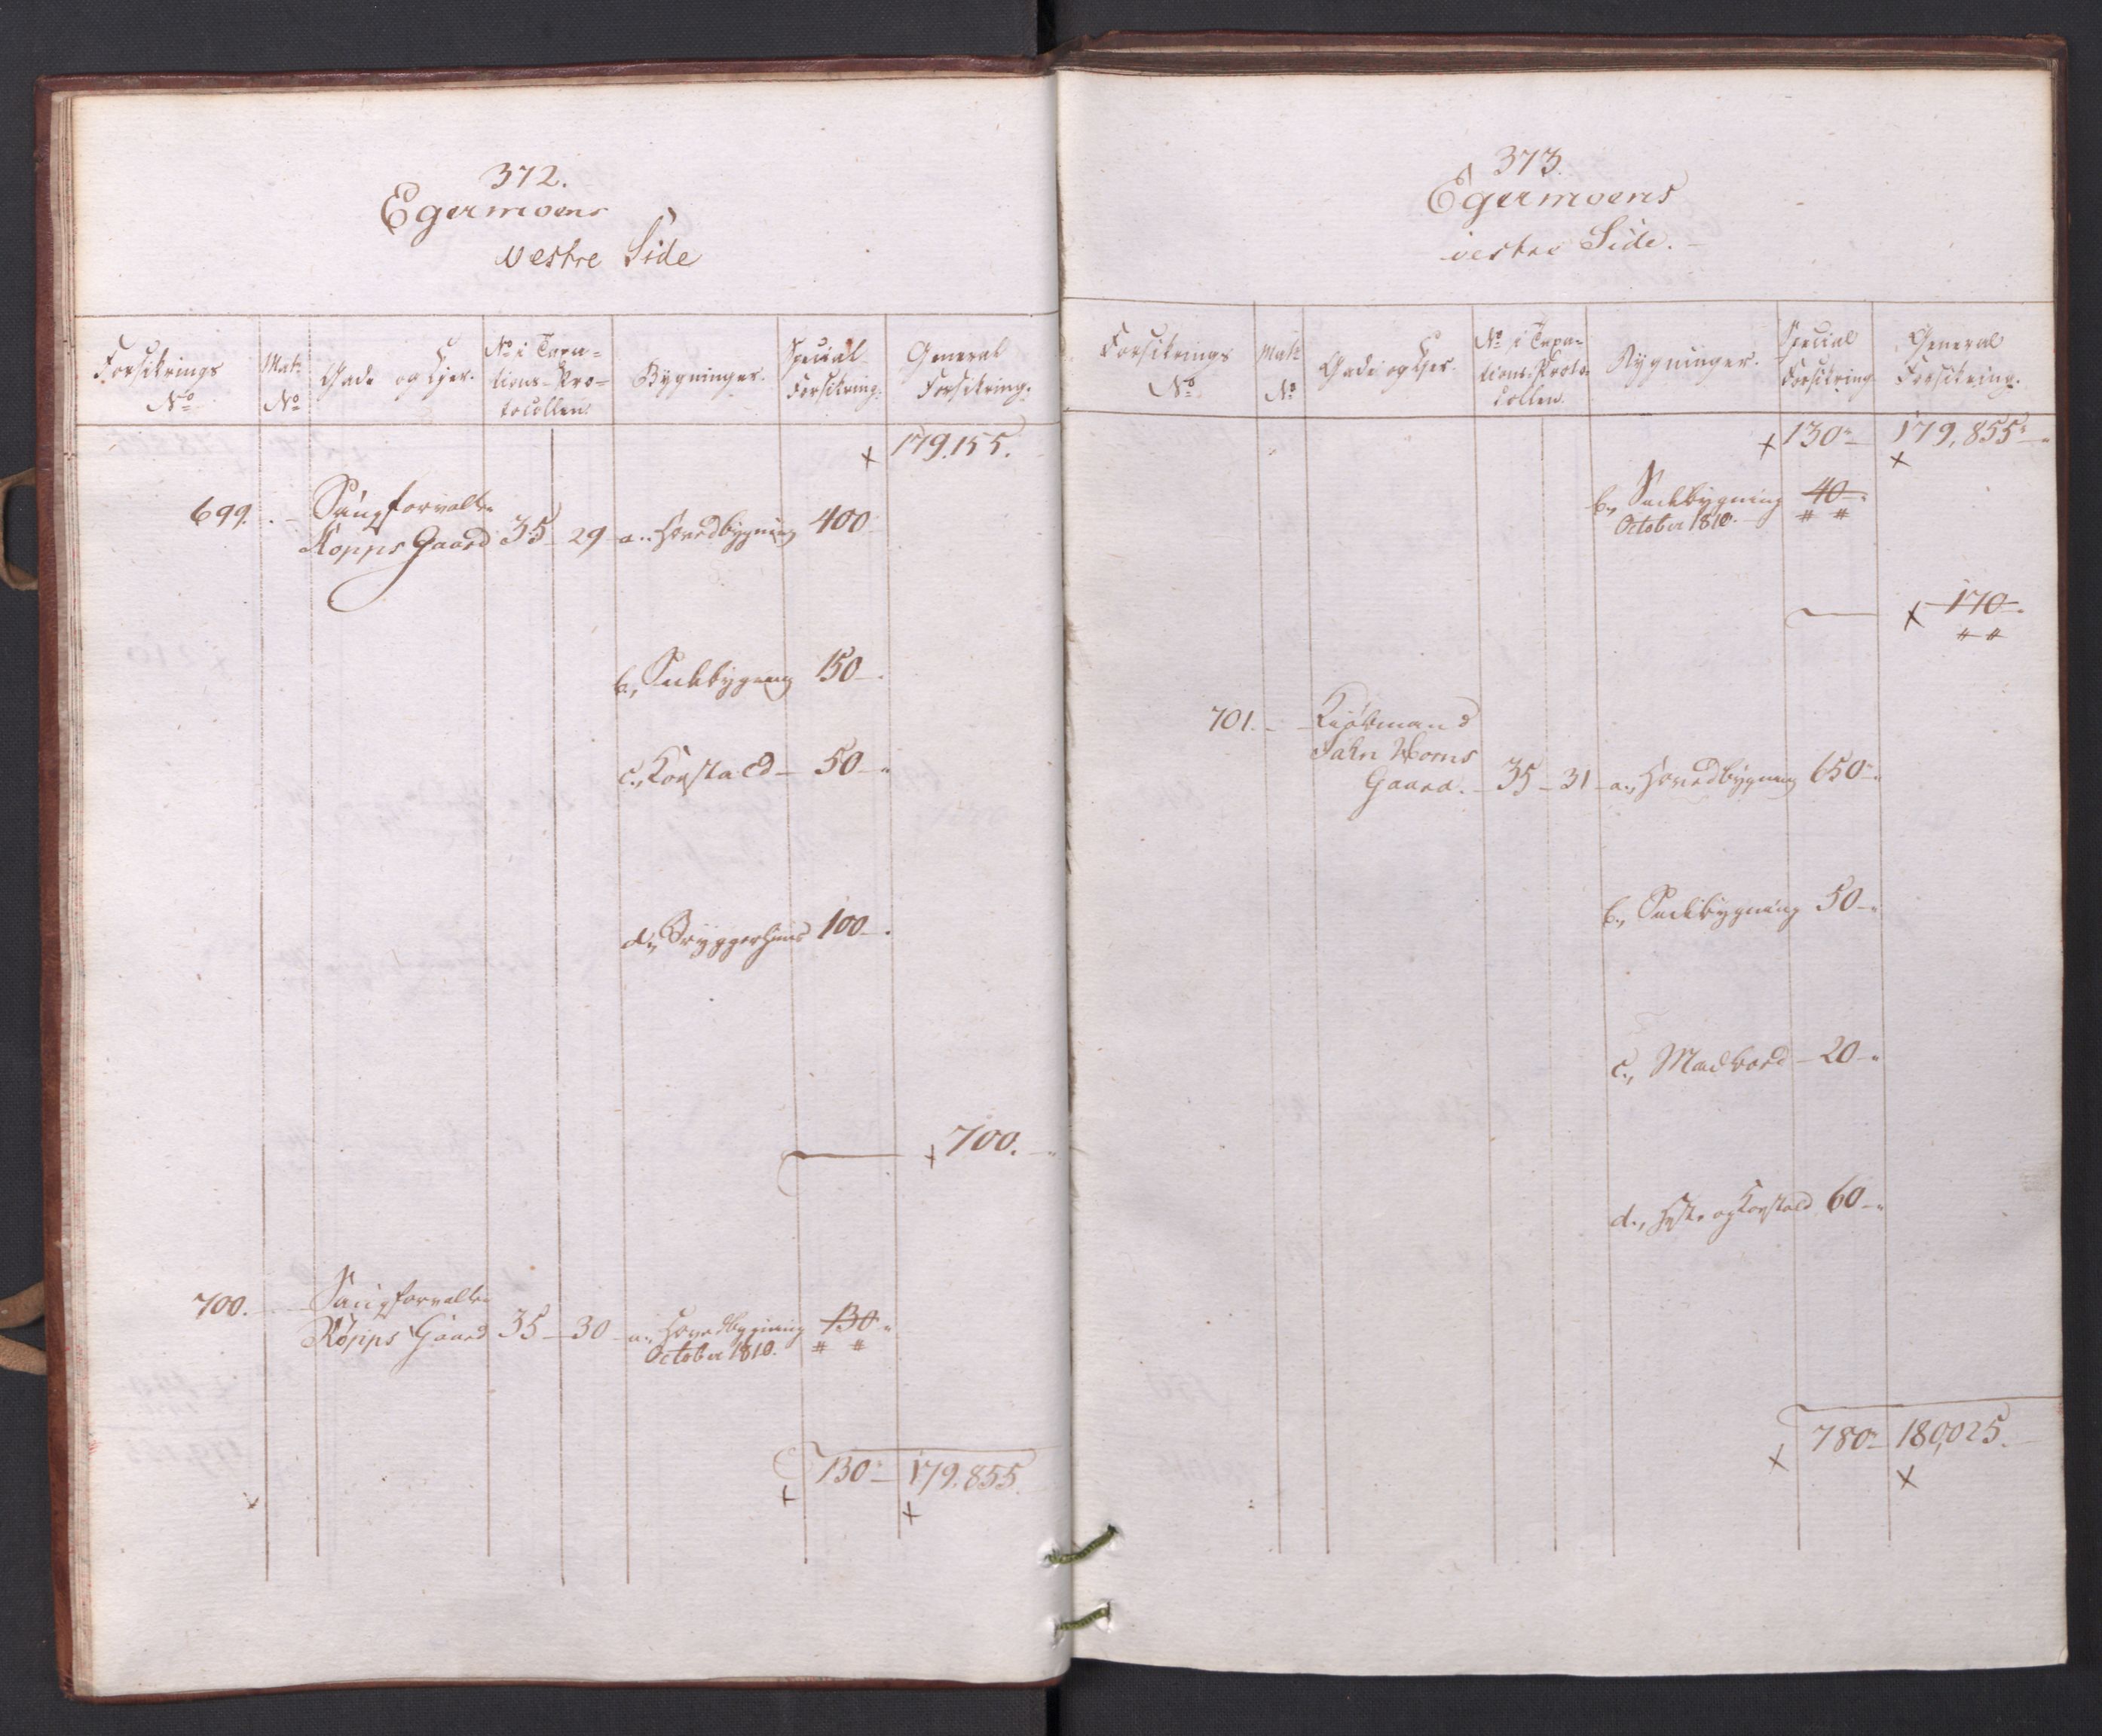 372.
Egermoens
vestre Side
Forsikrings No
Matr. No
Gade og Ejer.
No i Taxations-Protocollen.
Bygninger.
Special Forsikring.
General Forsikring.
179,155.
699. Tangforvalter
Kopps Gaard 35 29 a., Hovedbygning 400
b., Sidebygning 150
c., Kostald 50
d., Bryggerhuus 100
700.
700. Tangforvalter
Kopps Gaard 35 30 a., Hovedbygning 130
October 1810.
130 179,855.
373.
Egermoens
vestre Side.
Forsikrings No
Matr. No
Gade og Ejer.
No i Taxations-Protocollen.
Bygninger.
Special Forsikring
General Forsikring.
130 179,855
b., Sidebygning 40
October 1810.
170
701. Kiøbmand
Jahn Horns
Gaard. 35 31 a., Hovedbygning 650
b., Sidebygning 50
c., Madbod 20
d., og Kostald 60
780 180,025.